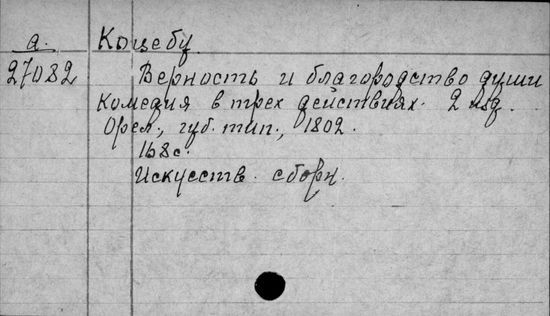 а. Коцебу.
27082 Верность и благородство души
Комедия в трех действиях. 2 изд.
Орел, губ. тип., 1802.
168 с.
Искусств. сборн.